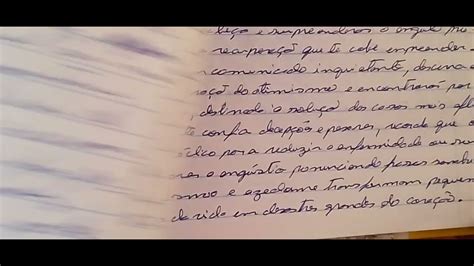 leça e surpreenderás o angul
reparação que te cabe empreender.
comunicado inquietante, descerra
do otimismo e encontrarás por
, destinada à solução dos casos mais
te confia decepções e pesares, recorda que o
para reduzir a enfermidade ou
a angústia pronunciando frases
e azedume transformam pequen
da vida em desastres grandes do coração.